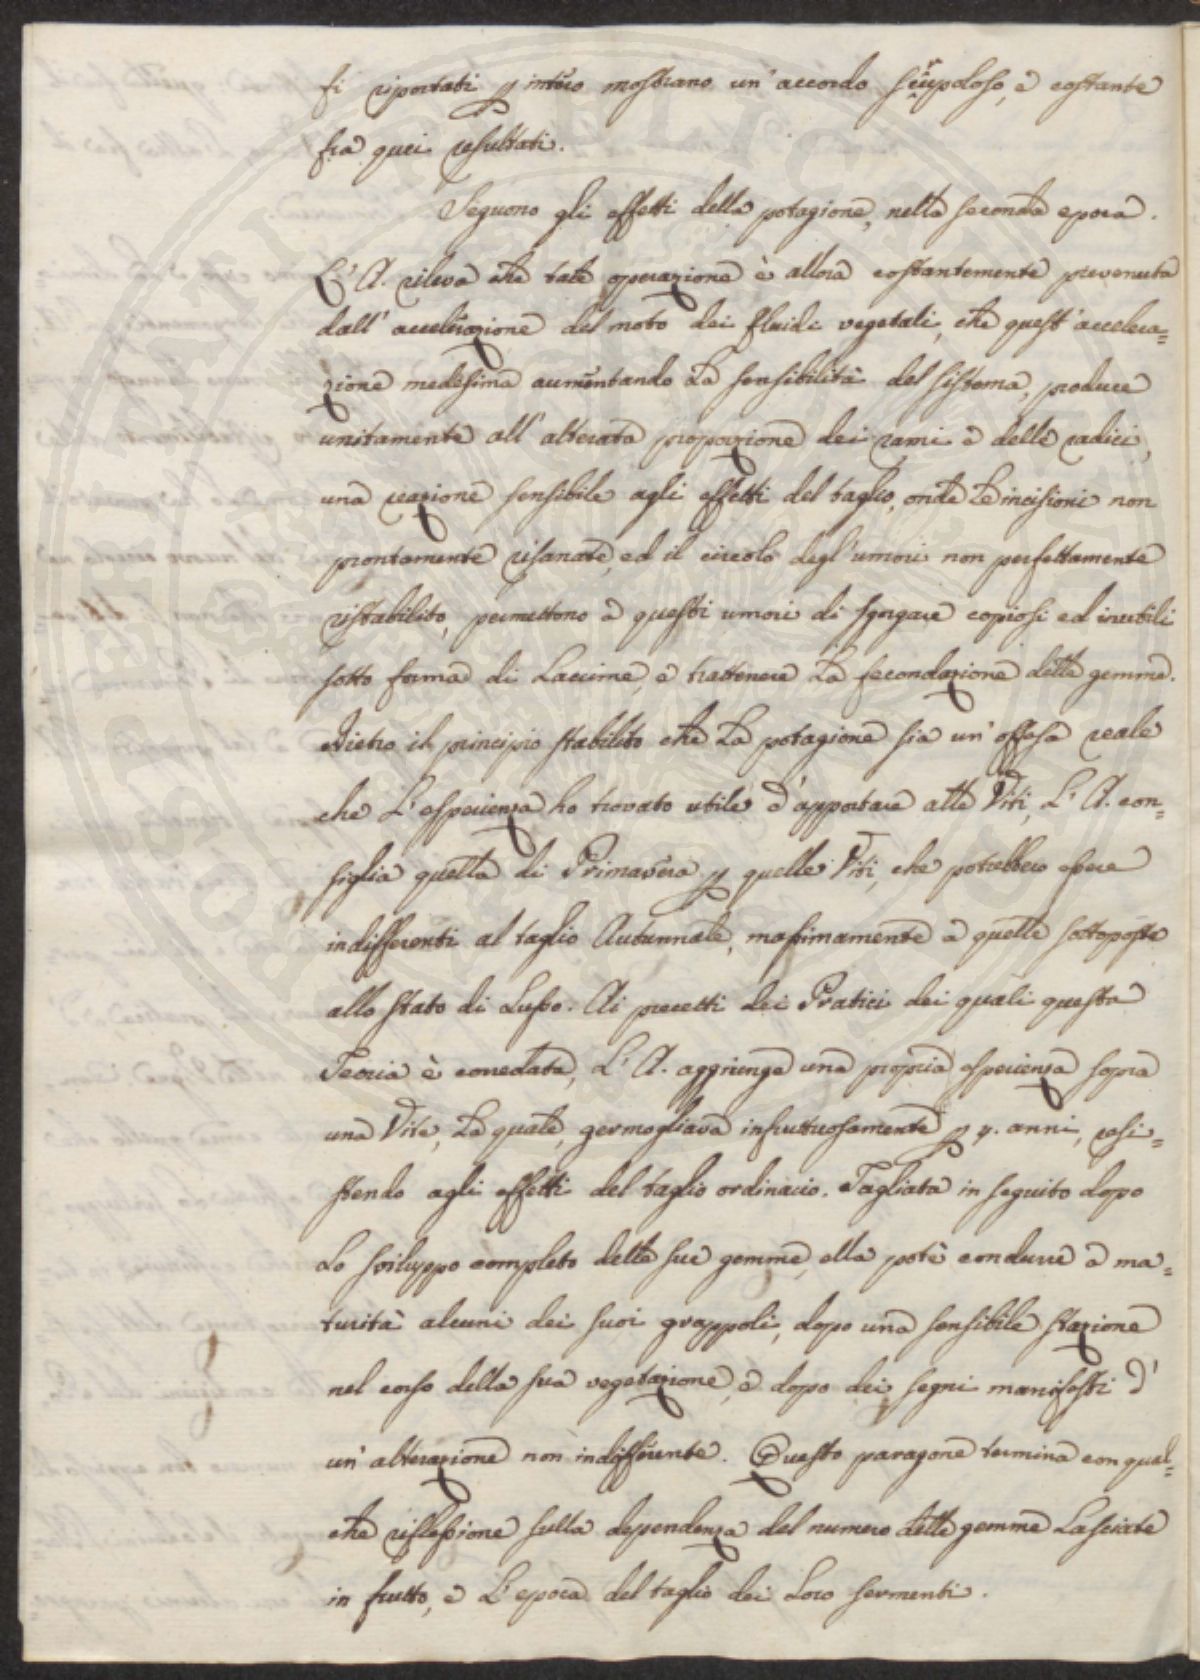 si riportati p intero mostrano un' accordo scrupoloso, e costante
fra quei resultati.
Seguono gli effetti della potagione, nella seconda epoca.
L' A. rileva che tale operazione è allora costantemente prevenuta
dall' accelerazione del moto dei fluidi vegetali, che quest' accelera=
zione medesima aumentando la sensibilità del sistema, produce
unitamente all' alterata proporzione dei rami e delle radici,
una reazione sensibile agli effetti del taglio, onde le incisioni non
prontamente risanate, ed il circolo degl' umori non perfettamente
ristabilito, permettono a questi umori di sgorgare copiosi ed inutili
sotto forma di Lacrime, e trattenere la fecondazione delle gemme.
Dietro il principio stabilito che la potagione sia un' offesa reale
che l' esperienza ha trovato utile d' apportare alle Viti, L' A. con=
siglia quella di Primavera p quelle Viti, che potrebbero essere
indifferenti al taglio Autunnale, massimamente a quelle sottoposte
allo stato di Lusso. Ai precetti dei Pratici dei quali questa
Teoria è corredata, L' A. aggiunge una propria esperienza sopra
una Vite, la quale, germogliava infruttuosamente p 4. anni, resi=
stendo agli effetti del taglio ordinario. Tagliata in seguito dopo
lo sviluppo completo delle sue gemme, ella potè condurre a ma=
turità alcuni dei suoi grappoli, dopo una sensibile stazione
nel corso della sua vegetazione, e dopo dei segni manifesti d'
un' alterazione non indifferente. Questo paragone termina con qual=
che riflessione sulla dependenza del numero delle gemme lasciate
in frutto, e l' epoca del taglio dei loro sermenti.